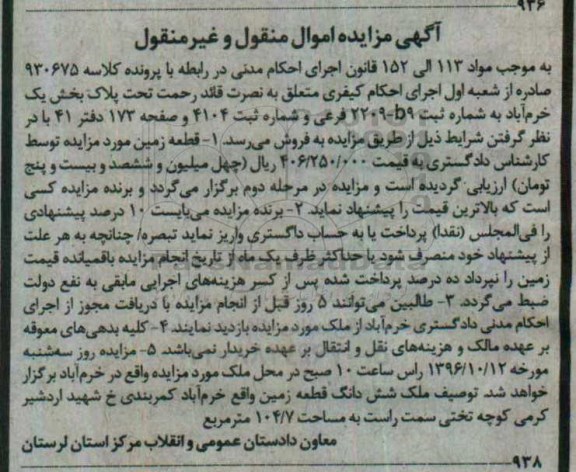 ۹۳۶
آگهی مزایده اموال منقول و غیرمنقول
به موجب مواد ۱۱۳ الی ۱۵۲ قانون اجرای احکام مدنی در رابطه با پرونده کلاسه ۹۳۰۶۷۵
صادره از شعبه اول اجرای احکام کیفری متعلق به نصرت قائد رحمت تحت پلاک بخش یک
خرم‌آباد به شماره ثبت ۲۲۰۹-b۹ فرعی و شماره ثبت ۴۱۰۴ و صفحه ۱۷۳ دفتر ۴۱ با در
نظر گرفتن شرایط ذیل از طریق مزایده به فروش می‌رسد. ۱- قطعه زمین مورد مزایده توسط
کارشناس دادگستری به قیمت ۴۰۶/۲۵۰/۰۰۰ ریال (چهل میلیون و ششصد و بیست و پنج
تومان) ارزیابی گردیده است و مزایده در مرحله دوم برگزار می‌گردد و برنده مزایده کسی
است که بالاترین قیمت را پیشنهاد نماید. ۲- برنده مزایده می‌بایست ۱۰ درصد پیشنهادی
را فی‌المجلس (نقدا) پرداخت یا به حساب داگستری واریز نماید تبصره/ چنانچه به هر علت
از پیشنهاد خود منصرف شود یا حداکثر ظرف یک ماه از تاریخ انجام مزایده باقمیانده قیمت
زمین را نپرداد ده درصد پرداخت شده پس از کسر هزینه‌های اجرایی مابقی به نفع دولت
ضبط می‌گردد. ۳- طالبین می‌توانند ۵ روز قبل از انجام مزایده با دریافت مجوز از اجرای
احکام مدنی دادگستری خرم‌آباد از ملک مورد مزایده بازدید نمایند. ۴- کلیه بدهی‌های معوقه
بر عهده مالک و هزینه‌های نقل و انتقال بر عهده خریدار نمی‌باشد. ۵- مزایده روز سه‌شنبه
مورخه ۱۳۹۶/۱۰/۱۲ راس ساعت ۱۰ صبح در محل ملک مورد مزایده واقع در خرم‌آباد برگزار
خواهد شد. توصیف ملک شش دانگ قطعه زمین واقع خرم‌آباد کمربندی خ شهید اردشیر
کرمی کوچه تختی سمت راست به مساحت ۱۰۴/۷ مترمربع
معاون دادستان عمومی و انقلاب مرکز استان لرستان
۹۳۸